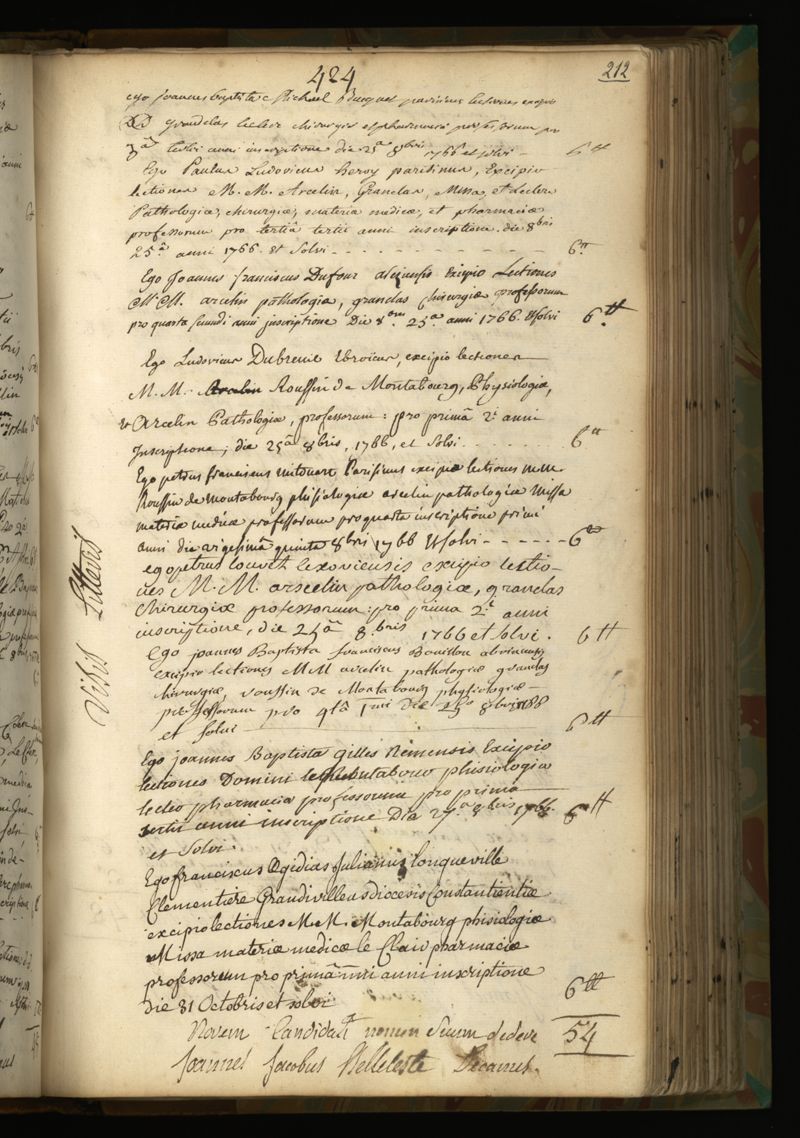 424
212
ego joannes baptista Michael Bucquet parisinus lectiones excipio
DD grandclas leclerc chirurgiæ et pharmaciæ professorum pro
3â tertii anni inscriptione die 25â 8bris 1766 et solvi - 6 tt
Ego Paulus Ludovicus Leroy parisinus, Excipio
lectiones M. M. Arcelin, Granclas, Missa, et Leclerc
Pathologiæ, chirurgiæ, materia medicæ, et pharmaciæ
professorum pro tertiâ tertii anni inscriptione. die 8bris
25.â anni 1766. et Solvi - - - - - - - - - - - 6 tt
Ego Joannes franciscus Dufour Excipio Lectiones
M M. arcelin pathologiæ, granclas chirurgiæ professorum
pro quarta secundi anni inscriptione Die 8bris 25.a anni 1766. et Solvi 6.tt
Ego Ludovicus Dubreuil Ebroicus, excipio lectiones
M. M. Roussin de Montabourg, Physiologiæ,
& Arcelin Pathologiæ, professorum : pro primâ 2i anni
Inscriptione, die 25â 8bris, 1766, et Solvi . . . . . . . 6 tt
Ego petrus franciscus mitouart Parisinus excipio lectiones m.m.
Roussin de montabourg phisiologiæ arcelin pathologiæ missa
materiæ medicæ professorum pro quarta inscriptione primi
anni die vigesimâ quinta 8bri 1766 et solvi - - - - - - 6 tt
ego petrus louvet lexoviensis excipio lectio-
nes M. M. arscelin pathologiæ, grandas
Chirurgiæ professorum : pro prima 2.i anni
inscriptione, die 25â 8.bris 1766 et solvi. 6 tt
Ego joannes Baptista franciscus Bouillon
excipio lectiones MM arcelin pathologiæ granclas
chirurgiæ, roussin de Montabourg physiologiæ
professorum pro 4tâ 1mi die 25â 8bris 1766
et solvi 6 tt
Ego joannes Baptista Gilles Remensis Excipio
lectiones Domini montabour phisiologiæ
lecler pharmacia professorum pro prima
tertii anni inscriptione Die 27.a 8bris 1766. 6 tt
et Solvi.
Ego franciscus Ægidius Julianus longueville
Clementiere Grandivilleus diocesis Constantientiæ
excipio lectiones M.M. Montabourg phisiologiæ
Missa materiæ medicæ le Clair pharmaciæ
professorum pro primâ mri anni inscriptione
die 31 Octobris et solvi 6 tt
Novem Candidati nomen Suum dedere 54
Joannes Jacobus Belleteste Decanus.
Visis Litteris